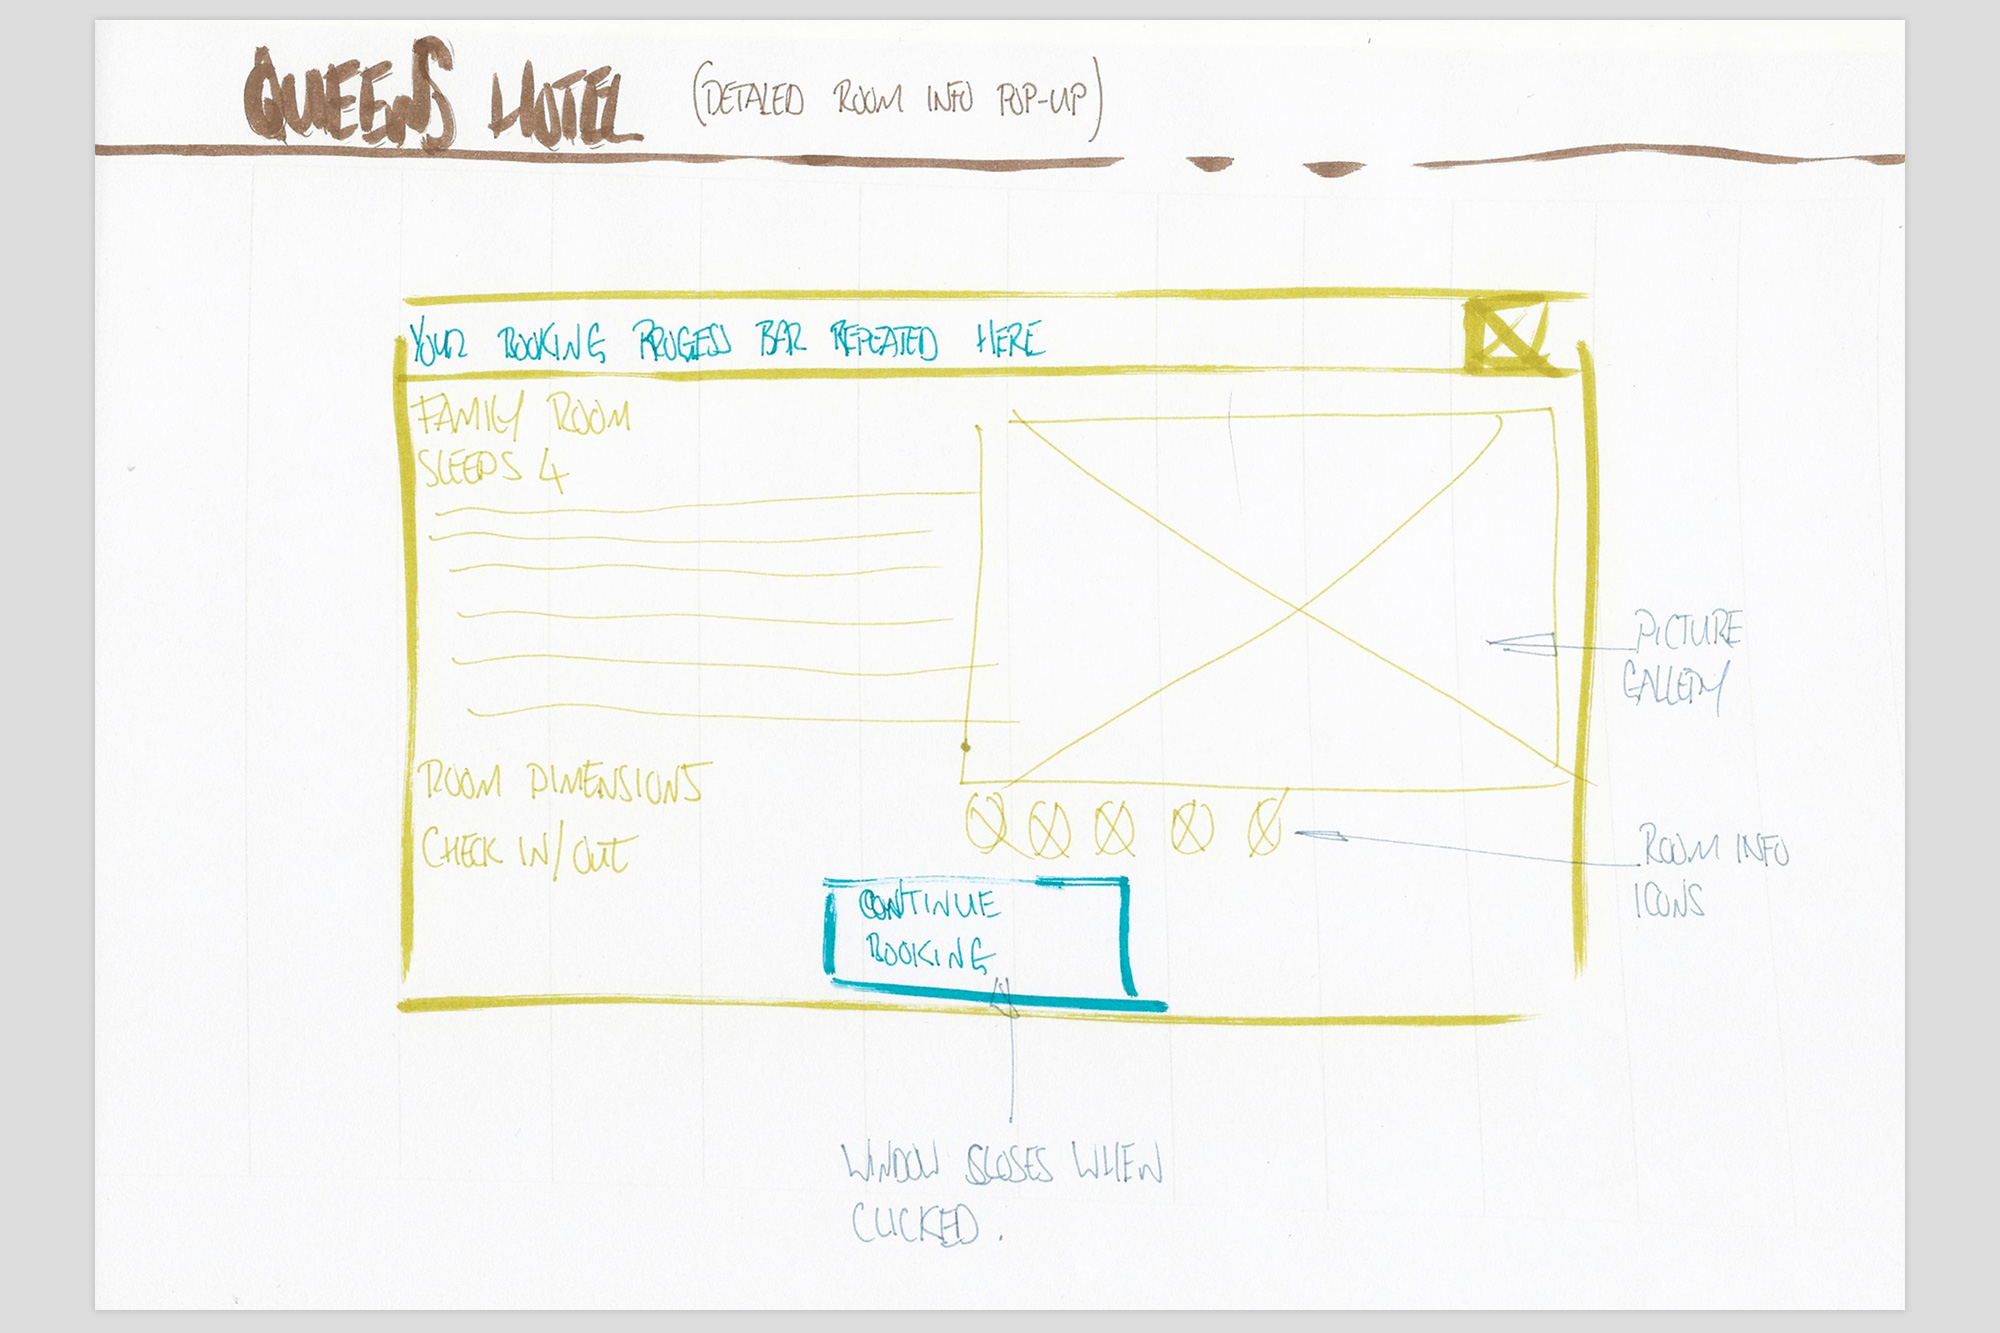 QUEENS HOTEL (DETALED ROOM INFO POP-UP)
YOUR BOOKING PROGESS BAR REPEATED HERE
FAMILY ROOM
SLEEPS 4
PICTURE
GALLERY
ROOM DIMENSIONS
CHECK IN/OUT
ROOM INFO
ICONS
CONTINUE
BOOKING
WINDOW CLOSES WHEN
CLICKED.